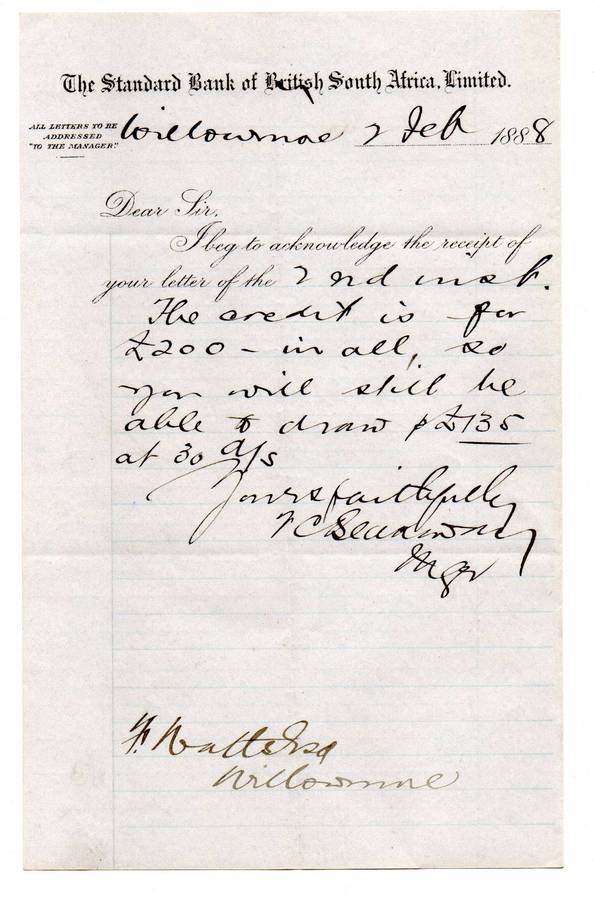 The Standard Bank of British South Africa, Limited.
ALL LETTERS TO BE
ADDRESSED
"TO THE MANAGER."
Willowmore 2 Feb 1888
Dear Sir,
I beg to acknowledge the receipt of
your letter of the 2nd inst.
The credit is for
£200 – in all, so
you will still be
able to draw p £135
at 30 d/s
Yours faithfully
Mgr
F. Watts Esq
Willowmore